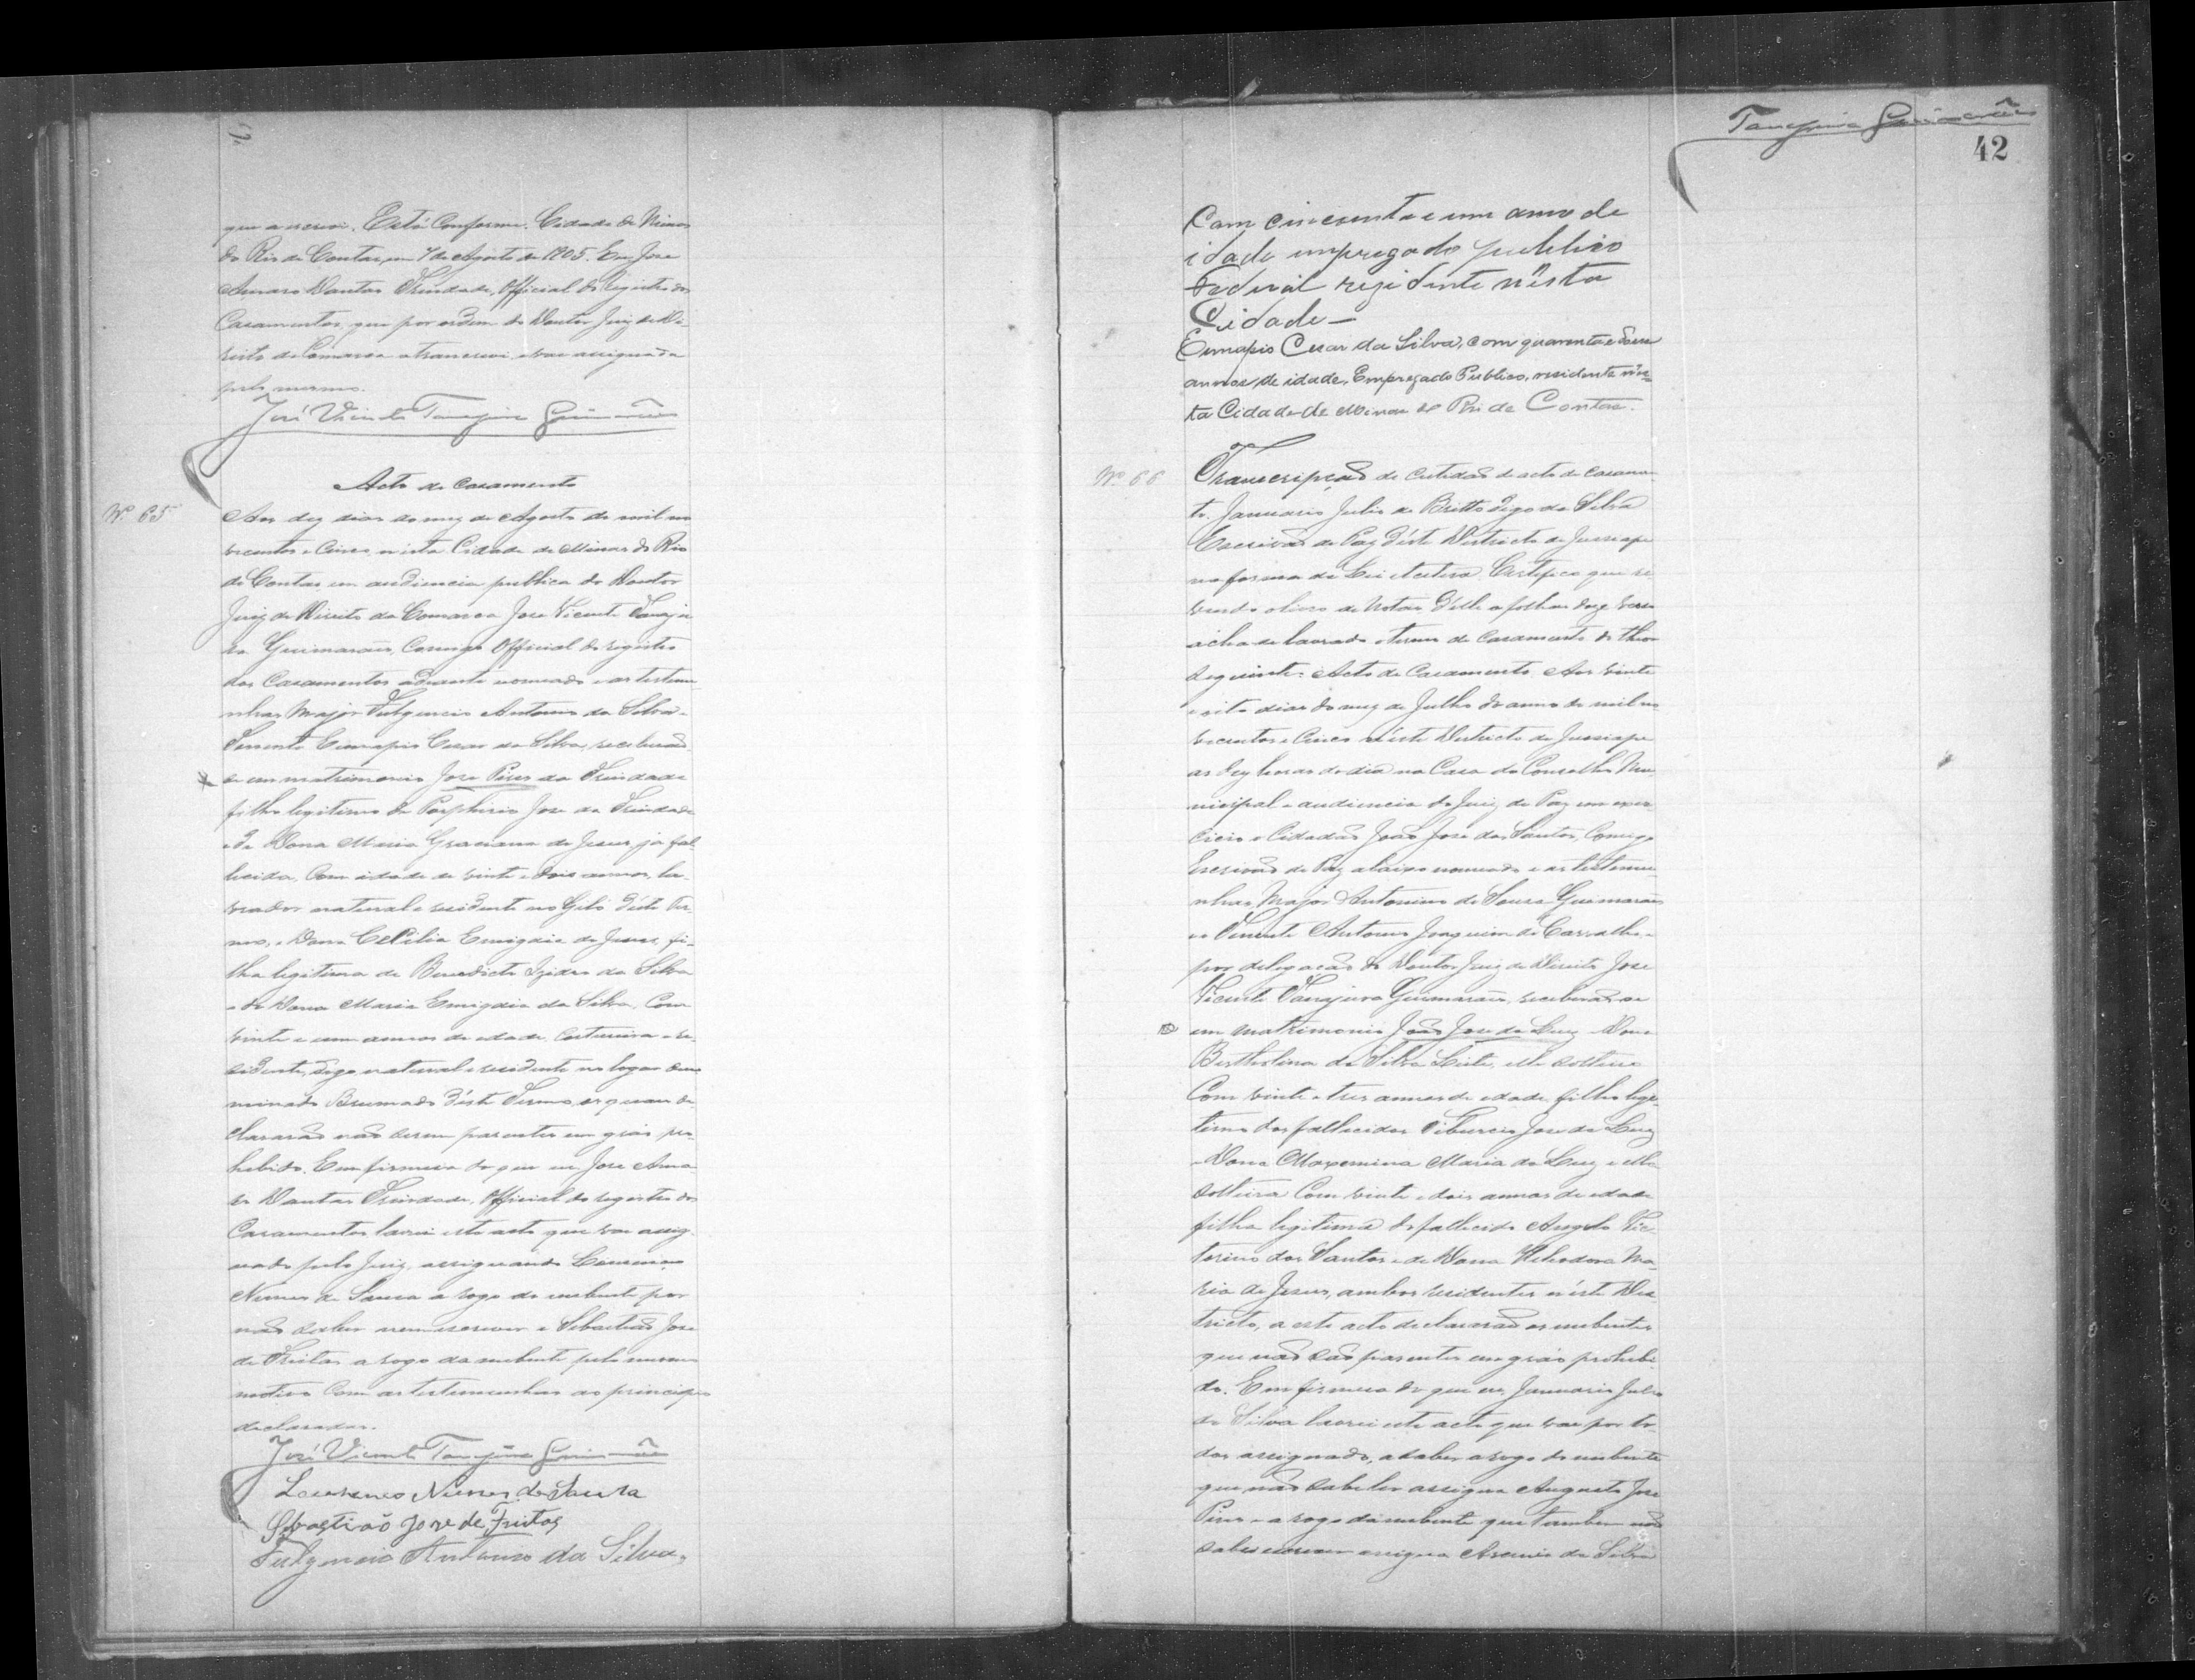 que a escrevi. Está Conforme. Cidade de Minas
do Rio de Contas, em 7 de Agosto de 1905. Eu, Jose
Amaro Dantas Trindade, Official do registro dos
Casamentos que por ordem do Doutor Juiz de Di-
reito da Comarca a transcrevi e vae assignada
pelo mesmo.
José Vicente Tanajura Guimarães
Acto de Casamento
Nº 65
Aos dez dias do mez de Agosto de mil no
vecentos e Cinco n'esta Cidade de Minas do Rio
de Contas em audiencia publica do Doutor
Juiz de Direito da Comarca Jose Vicente Tanaju
ra Guimarães, Comigo Official do registro
dos Casamentos adiante nomeado e as testemu
nhas Major Fulgencio Antonio da Silva e
Tenente Eunapio Cesar da Silva, receberão
se em matrimonio Jose Pires da Trindade
filho legitimo de Porphirio Jose da Trindade
e de Dona Maria Graciana de Jesus, já fal-
lecida, Com idade de vinte e dois annos, la-
vrador natural e residente no Gibó d'este Ter-
mo, e Dona Cecilia Emigdia de Jesus, fi-
lha legitima de Benedicto Izidro da Silva
e de Dona Maria Emigdia da Silva, Com
vinte e um annos de edade, Costureira e re-
sidente, digo natural e residente no logar deno
minado Brumado d'este Termo, os quaes de-
clararão não serem parentes em gráo pro-
hibido. E em firmeza do que eu Jose Ama
ro Dantas Trindade, Official do registro dos
Casamentos lavrei este acto que vae assig-
nado pelo Juiz, assignando Lourenço
Nunes de Souza a rogo do nubente por
não saber nem escrever e Sebastião Jose
de Freitas a rogo da nubente pelo mesmo
motivo Com as testemunhas ao principio
declaradas.
José Vicente Tanajura Guimarães
Lourenço Nunes de Souza
Sebastião Jose de Freitas
Fulgencio Antonio da Silva,
Tanajura Guimarães
42
Com cincoenta e um anno de
idade empregado publico
Federal rezidente nésta
Cidade—
Eunapio Cesar da Silva, com quarenta e dous
annos de idade, Empregado Publico, residente nés-
ta Cidade de Minas do Rio de Contas.
Nº 66
Transcripção de certidão de acto de casamen
to. Januario Julio de Britto digo da Silva
Escrivão de Paz d'este Districto de Jussiape
na forma da Lei etcetera. Certifico que re
vendo o livro de Notas d'elle a folhas doze verso
acha-se lavrado o termo de Casamento do theor
seguinte: Acto de Casamento. Aos vinte
e oito dias do mez de Julho do anno de mil no
vecentos e Cinco n'este Districto de Jussiape
as dez horas do dia na Casa do Conselho Mu
nicipal e audiencia do Juiz de Paz em exer
cicio o Cidadão João Jose dos Santos, Comigo
Escrivão de Paz abaixo nomeado e as testemu
nhas Major Antonino de Souza Guimarães
e o Tenente Antonio Joaquim de Carvalho, e
por delegação do Doutor Juiz de Direito Jose
Vicente Tanajura Guimarães, receberão-se
em matrimonio João Jose da Luz e Dona
Bertholina da Silva Leite, elle solteiro
Com vinte e tres annos de edade filho legi-
timo dos fallecidos Tiburcio Jose da Luz
e Dona Maria da Luz e ella
solteira Com vinte e dois annos de edade
filha legitima do fallecido Angelo Vic
torino dos Santos e de Dona Heliodora Ma-
ria de Jesus, ambos residentes n'este Dis-
tricto, a este acto declararão os nubentes
que não são parentes em gráo prohibi-
do. E em firmeza do que eu, Januario Julio
da Silva lavrei este acto que vae por to-
dos assignado, a saber a rogo do nubente
que não sabe ler assigna Augusto Jose
Pires e a rogo da nubente que tambem não
sabe escrever assigna da Silva